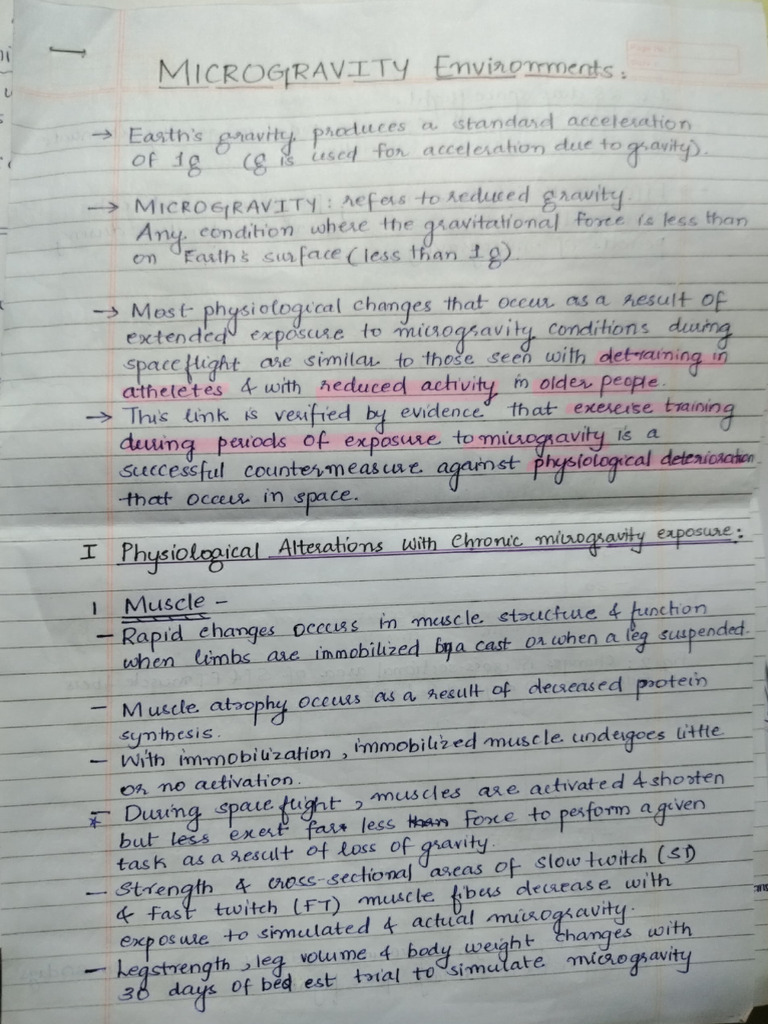 MICROGRAVITY Environments.
→ Earth's gravity produces a standard acceleration
of 1g (g is used for acceleration due to gravity).
→ MICROGRAVITY : refers to reduced gravity.
Any condition where the gravitational force is less than
on Earth's surface (less than 1g)
→ Most physiological changes that occur as a result of
extended exposure to microgravity conditions during
spaceflight are similar to those seen with detraining in
atheletes & with reduced activity in older people.
→ This link is verified by evidence that exercise training
during periods of exposure to microgravity is a
successful countermeasure against physiological deterioration
that occur in space.
I Physiological Alterations with chronic microgravity exposure:
1 Muscle -
- Rapid changes occurs in muscle structure & function
when limbs are immobilized by a cast or when a leg suspended.
- Muscle atrophy occurs as a result of decreased protein
synthesis.
- With immobilization, immobilized muscle undergoes little
or no activation.
* During space flight, muscles are activated & shorten
but less exert far less than force to perform a given
task as a result of loss of gravity.
- Strength & cross-sectional areas of slow twitch (ST)
& fast twitch (FT) muscle fibers decrease with
exposure to simulated & actual microgravity.
- Leg strength, leg volume & body weight changes with
30 days of bed est trial to simulate microgravity